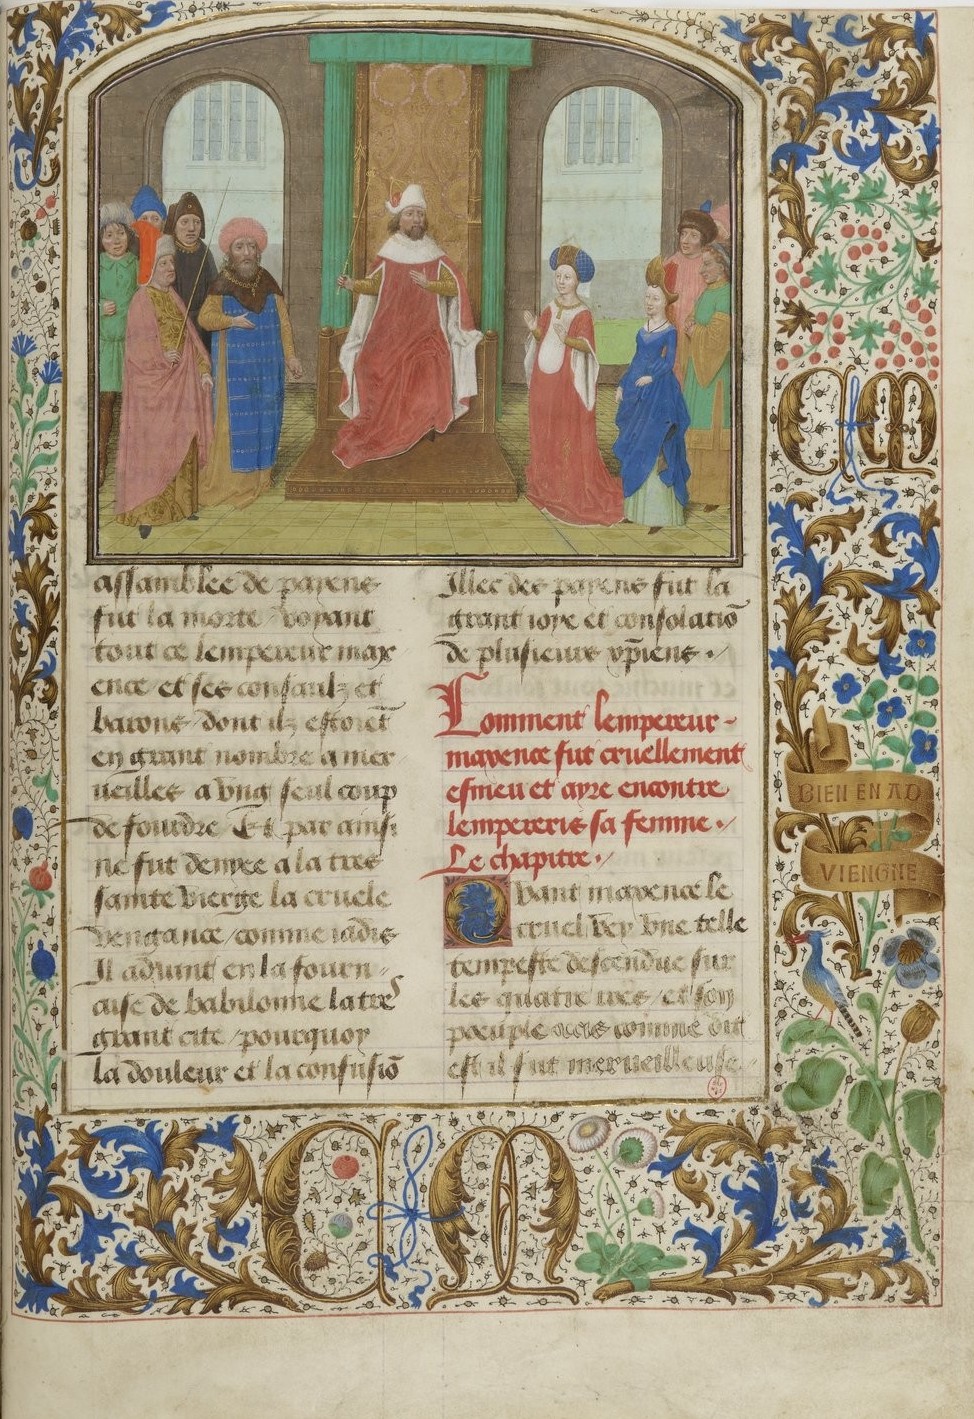 assamblee de payens
fut la morte / voyant
tout ce lempereur max
ence / et ses consaulz et
barons / dont ilz estoiēt
en grant nombre a mer
ueilles a vng seul coup
de fouldre / Et par ainsi
ne fut denyee a la tres
sainte vierge la cruele
vengance / comme iadis
Il aduint en la fourn
aise de babilonne la tres
grant cite / pourquoy
la douleur et la confusiō
Illec des payens fut la
grant ioye et consolatiō
de plusieurs xp̄iens ·/
Comment lempereur -
maxence fut cruellement
esmeu et ayre encontre
lempereris sa femme ·/
Le chapitre ·/
Quant maxence le
cruel vey vne telle
tempeste descendue sur
les quatre roes / et son
poeuple occis comme dit
est il fut merueilleuse
CM
BIEN EN AD
VIENGNE
CM